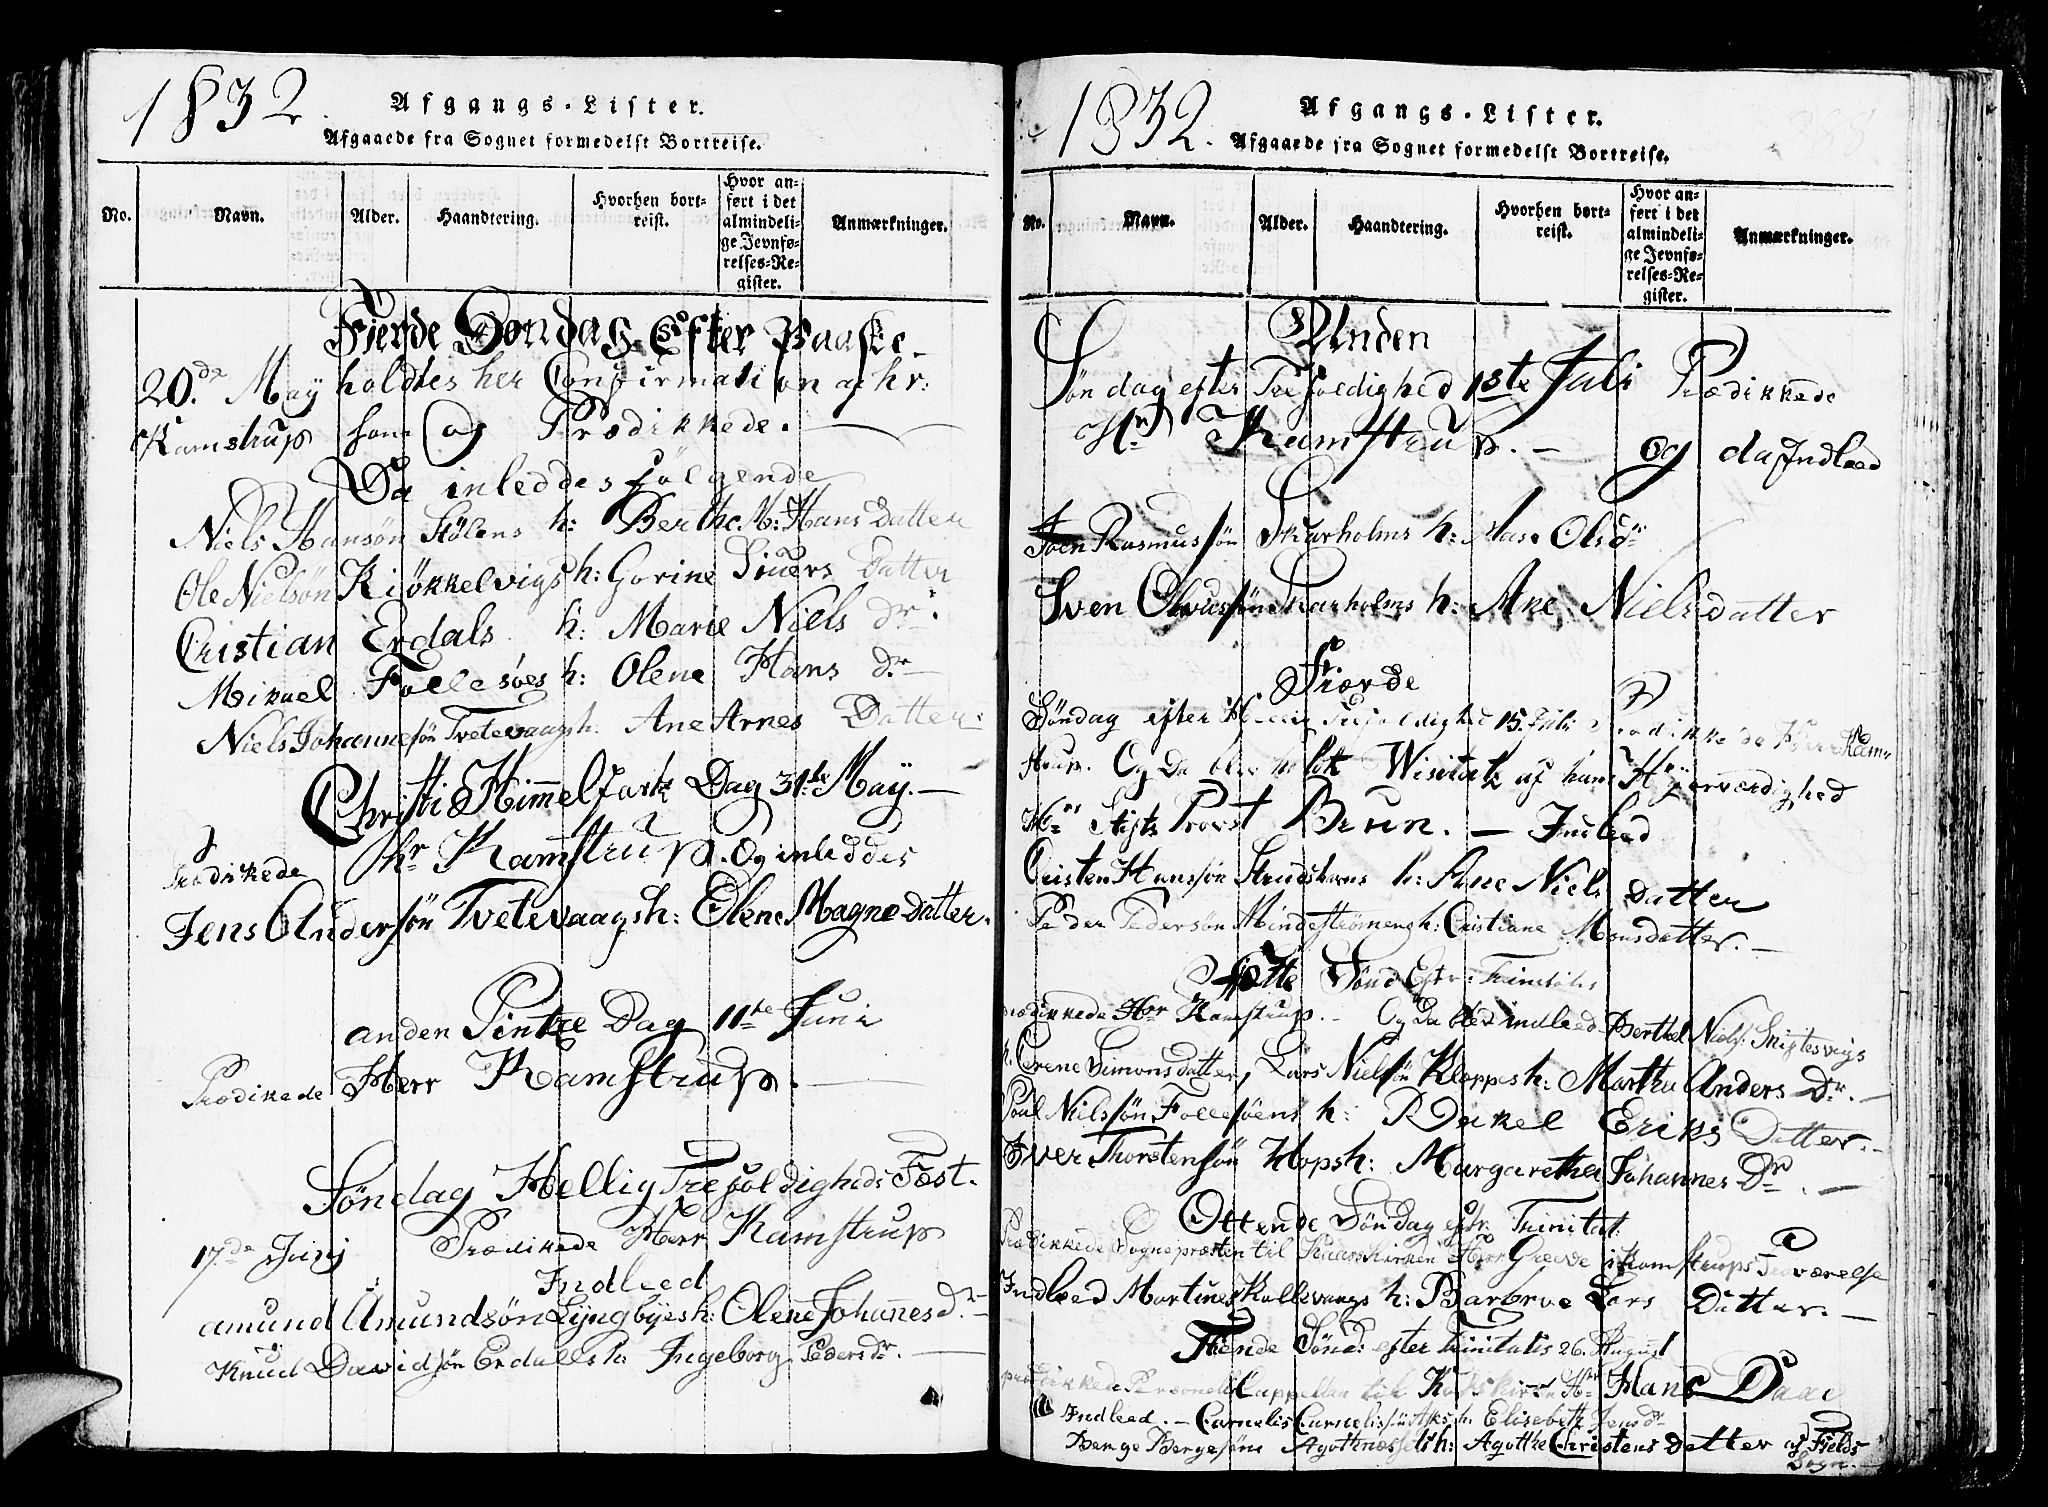 1832.
Afgangs-Lister.
Afgaaede fra Sognet formedelst Bortreise.
No. Navn. Alder. Haandtering. Hvorhen bortreist. Hvor anført i det almindelige Jevnførelses-Register. Anmærkninger.
Fierde Søndag Efter Paaske
20.de May holdtes her Confirmation af hr:
Kamstrup som og Prædikkede.
Da inleddes følgende
Niels Hansøn Stølens h: Berthe M: Hans Datter
Ole Nielsøn Kiøkkelvigs h: Gorine Siuers Datter
Cristian Erdals h: Marie Niels dr.
Mikael Follesøes h: Olene Hans dr.
Niels Johannesøn Tvetevaags h: Ane Arnes Datter.
Christi Himmelfarts Dag 31te May.
Prædikede hr Kamstrup. Og inleddes
Jens Andersøn Tvetevaags h: Olene Magne datter.
anden Pintze Dag 11te Juni
Prædikede Herr Kamstrup.
Søndag Hellig Trefoldigheds Fæst.
17.de Junj Prædikede Herr Kamstrup
Indleed
amund Amundsøn Lyngbyes h: Olene Johannes dr.
Knud Davidsøn Erdals h: Ingeborg Peders dr.
1832.
Afgangs-Lister.
Afgaaede fra Sognet formedelst Bortreise.
No. Navn. Alder. Haandtering. Hvorhen bortreist. Hvor anført i det almindelige Jevnførelses-Register. Anmærkninger.
Anden
Søndag efter Trefoldighed 1ste Juli Prædikkede
Hr Kamstrup. og da Indleed
Rasmussøn Skarholms h: Ols dr
Sven Skarholms h: Ane Nielsdatter
Fiærde
Søndag efter Hellig Trefoldighed 15. Juli Prædikkede Herr Kam-
strup. Og Da blev holdt Wisitatz af hans Højærværdighed
Hr Stifts Provst Brun. Indleed
Cristen Hanssøn h: Ane Niels Datter
Peder Pedersøn Mindestrømens h: Cristiane Monsdatter.
Siette Sønd Eftr:
Prædikkede Hr Kamstrup. Og Da blev indleed Berthel Niels:
h: Simonsdatter, Lars Nielsøn Kleppes h: Martha Anders Dr.
Poul Nielssøn Follesøens h: Rakel Eriks Datter.
Iver Thorstensøn Hops h: Margaretha Johannes Dr.
Ottende Søndag eftr. Trinitat.
Prædikkede Sognepræsten til Herr Greeve i Kamstrups
Indleed Martines h: Barbroe Lars Datter.
Tiende Sønd: efter Trinitatis 26. August
prædikkede Personell Cappellan til Hr Hans Daae
Indleed. Carnelis Carnelissøn Asks h. Elisebeth Jens dr
Benge Bergesøn h: Agotthe Christens datter af Fields
Sogn.